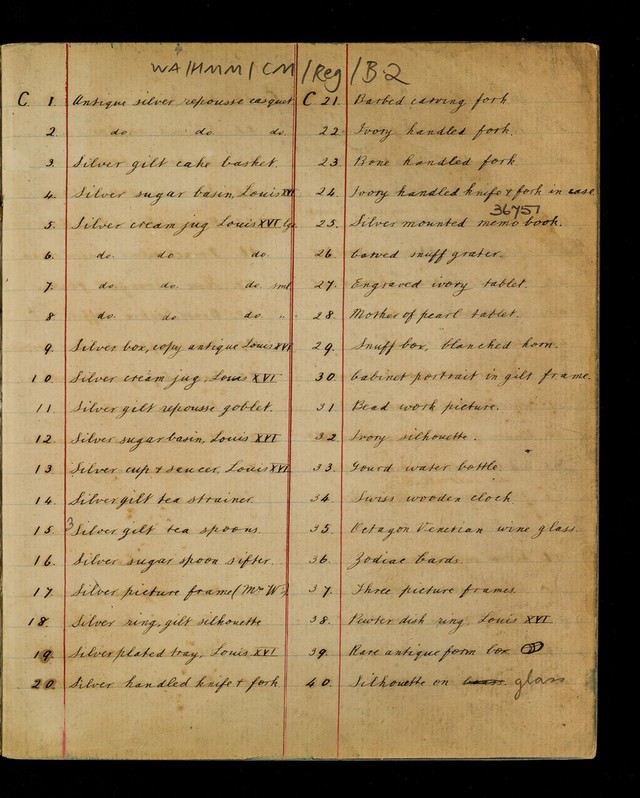 WA/HMM/CM/Reg/B.2
C 1. Antique silver repousse casquet
2 do do do.
3. Silver gilt cake basket.
4. Silver sugar basin, Louis XVI
5. Silver cream jug Louis XVI lge
6. do. do do
7. do. do. do. sml
8 do. do do. "
9. Silver box, copy antique Louis XVI
10. Silver cream jug, Louis XVI
11. Silver gilt repousse goblet.
12. Silver sugar basin, Louis XVI
13 Silver cup & saucer, Louis XVI
14. Silver gilt tea strainer.
15. 3 Silver gilt tea spoons.
16. Silver sugar spoon sifter.
17. Silver picture frame (Mr W's)
18. Silver ring, gilt silhouette
19. Silver plated tray, Louis XVI
20. Silver handled knife & fork
C 21. Barbed carving fork
22. Ivory handled fork.
23. Bone handled fork
24. Ivory handled knife & fork in case
36751
25. Silver mounted memo book.
26. Carved snuff grater.
27. Engraved ivory tablet.
28. Mother of pearl tablet.
29. Snuff box, blanched horn.
30. Cabinet portrait in gilt frame.
31 Bead work picture.
32. Ivory silhouette.
33. Gourd water bottle
34. Swiss wooden clock
35. Octagon Venetian wine glass.
36. Zodiac Cards.
37. Three picture frames
38. Pewter dish ring, Louis XVI
39. Rare antique form box
40. Silhouette on glass